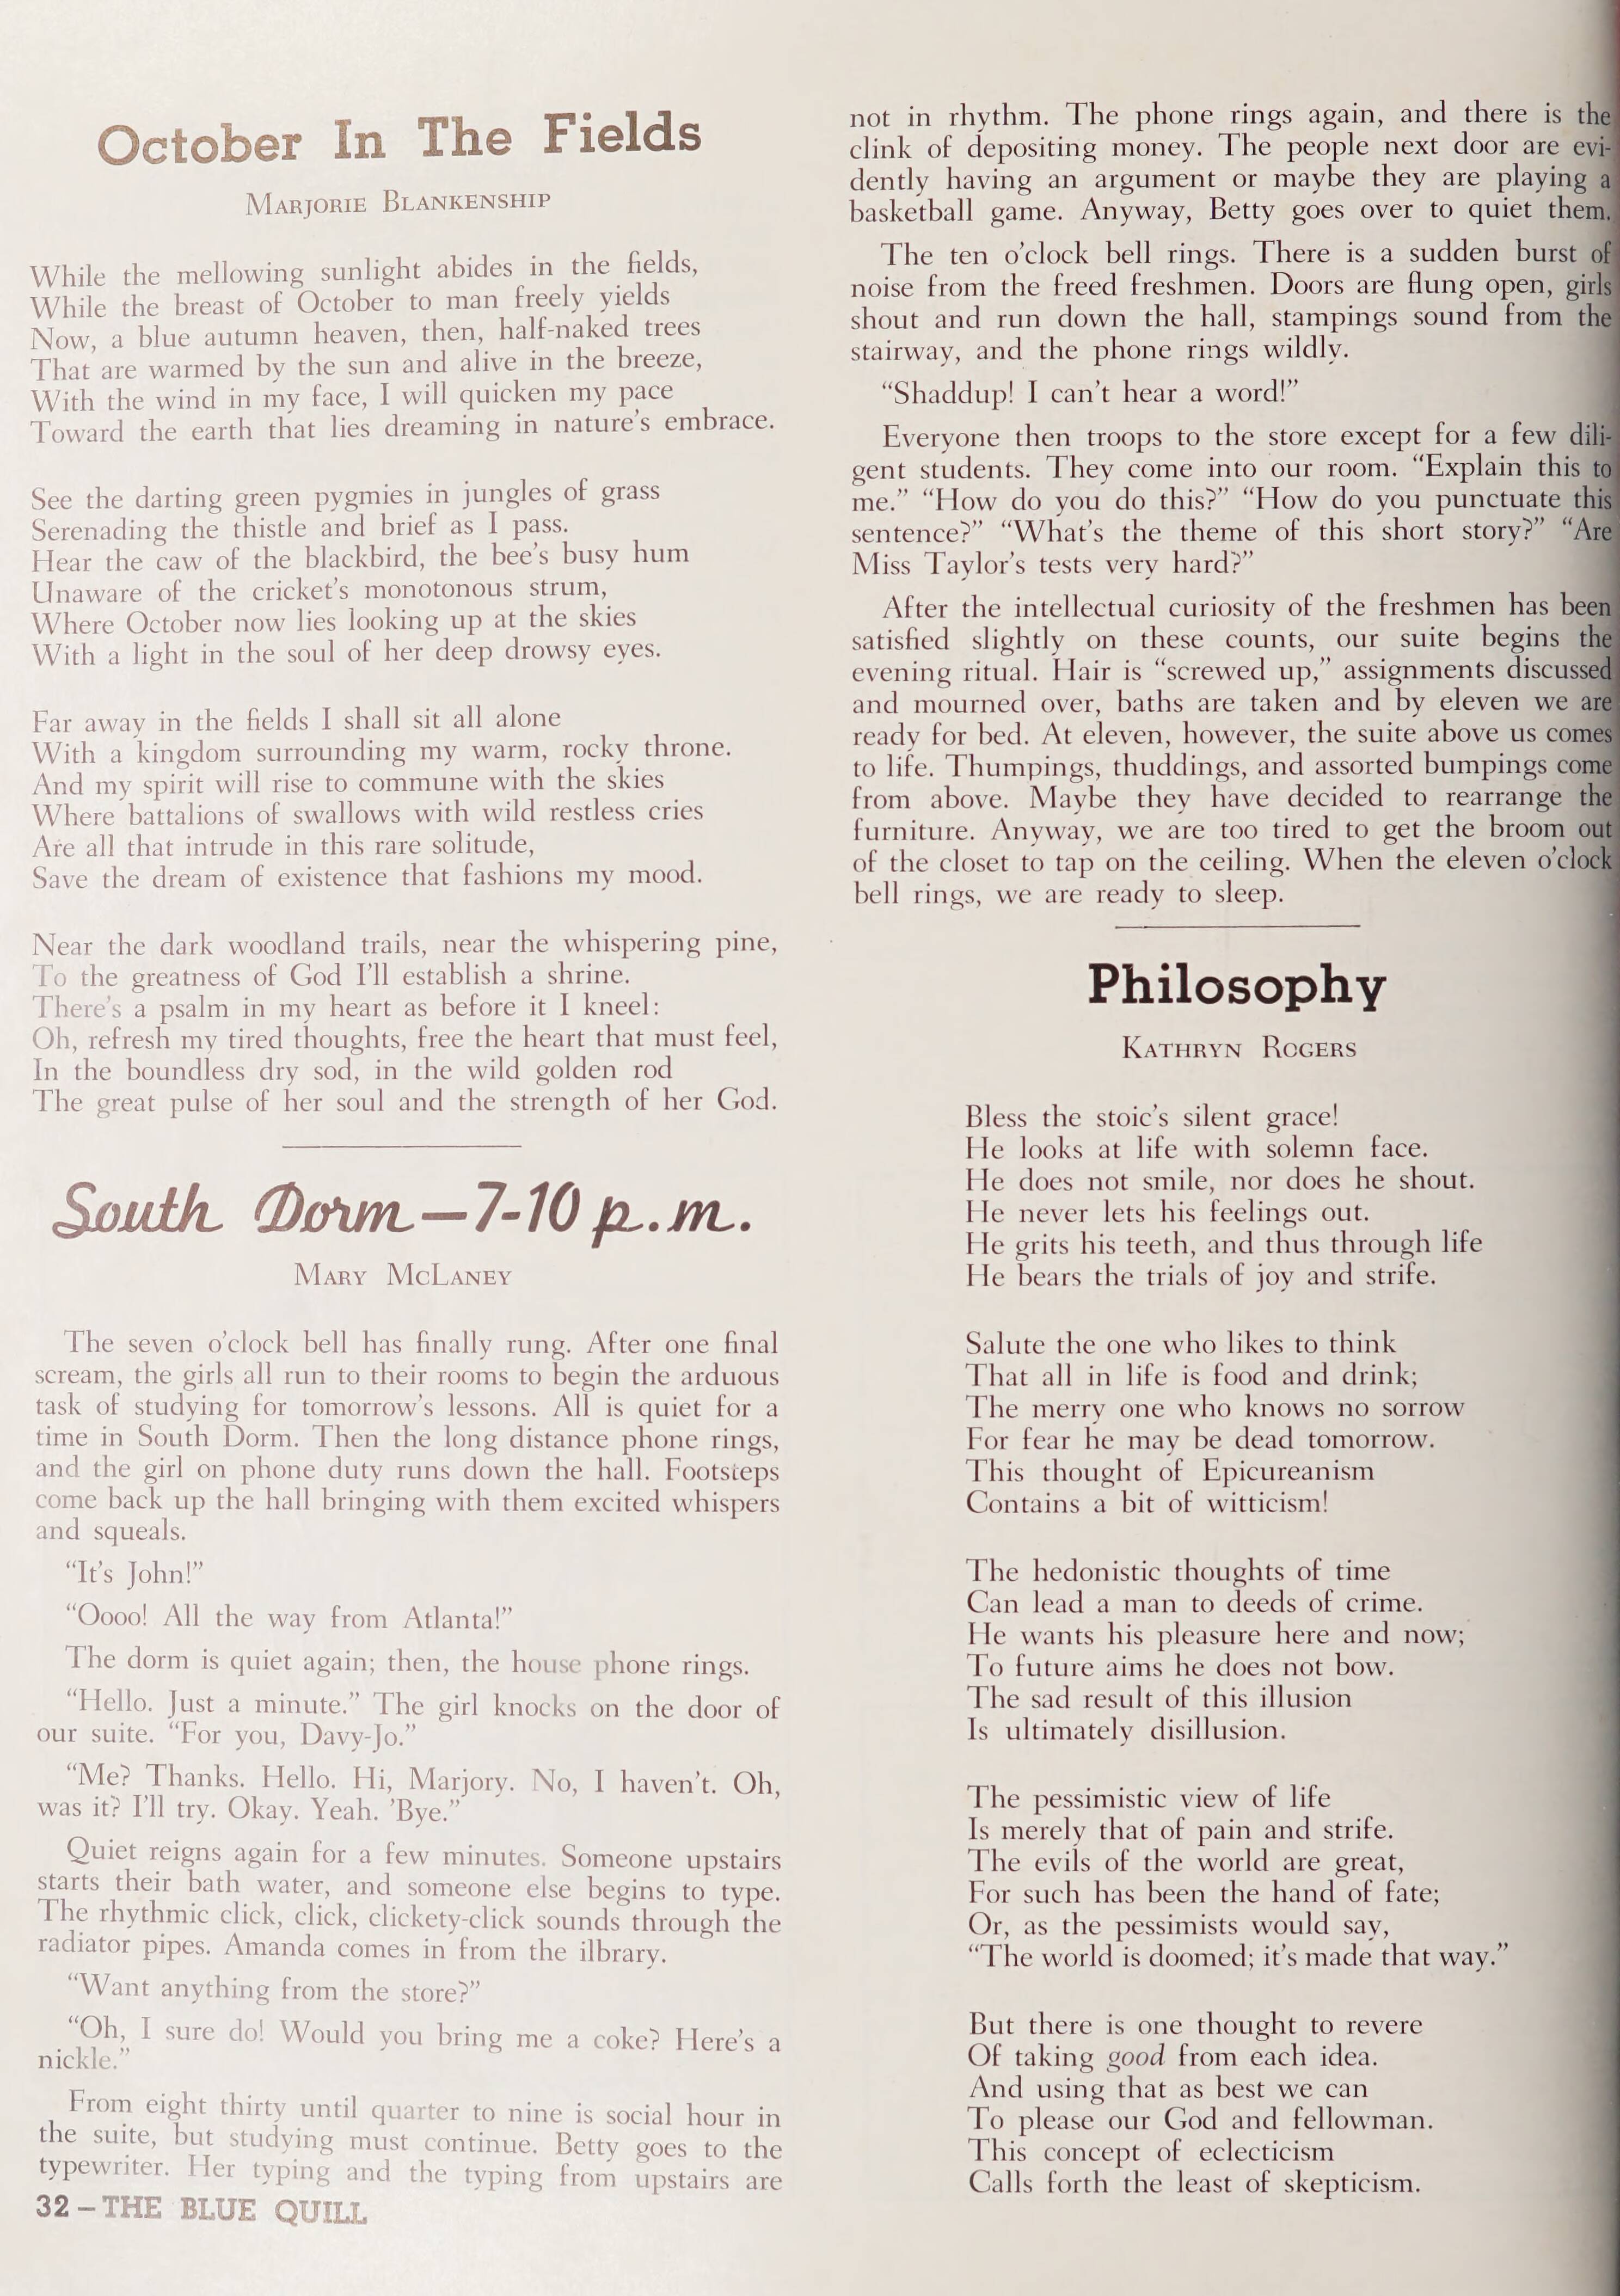 October In The Fields
Marjorie Blankenship
While the mellowing sunlight abides in the fields,
While the breast of October to man freely yields
Now, a blue autumn heaven, then, half-naked trees
That are warmed by the sun and alive in the breeze,
With the wind in my face, I will quicken my pace
Toward the earth that lies dreaming in nature's embrace.
See the darting green pygmies in jungles of grass
Serenading the thistle and brief as I pass.
Hear the caw of the blackbird, the bee's busy hum
Unaware of the cricket's monotonous strum,
Where October now lies looking up at the skies
With a light in the soul of her deep drowsy eyes.
Far away in the fields I shall sit all alone
With a kingdom surrounding my warm, rocky throne.
And my spirit will rise to commune with the skies
Where battalions of swallows with wild restless cries
Are all that intrude in this rare solitude,
Save the dream of existence that fashions my mood.
Near the dark woodland trails, near the whispering pine,
To the greatness of God I'll establish a shrine.
There's a psalm in my heart as before it I kneel:
Oh, refresh my tired thoughts, free the heart that must feel,
In the boundless dry sod, in the wild golden rod
The great pulse of her soul and the strength of her God.
South Dorm—7-10 p.m.
Mary McLaney
The seven o'clock bell has finally rung. After one final
scream, the girls all run to their rooms to begin the arduous
task of studying for tomorrow's lessons. All is quiet for a
time in South Dorm. Then the long distance phone rings,
and the girl on phone duty runs down the hall. Footsteps
come back up the hall bringing with them excited whispers
and squeals.
"It's John!"
"Oooo! All the way from Atlanta!"
The dorm is quiet again; then, the house phone rings.
"Hello. Just a minute." The girl knocks on the door of
our suite. "For you, Davy-Jo."
"Me? Thanks. Hello. Hi, Marjory. No, I haven't. Oh,
was it? I'll try. Okay. Yeah. 'Bye."
Quiet reigns again for a few minutes. Someone upstairs
starts their bath water, and someone else begins to type.
The rhythmic click, click, clickety-click sounds through the
radiator pipes. Amanda comes in from the ilbrary.
"Want anything from the store?"
"Oh, I sure do! Would you bring me a coke? Here's a
nickle."
From eight thirty until quarter to nine is social hour in
the suite, but studying must continue. Betty goes to the
typewriter. Her typing and the typing from upstairs are
32—THE BLUE QUILL
not in rhythm. The phone rings again, and there is the
clink of depositing money. The people next door are evi-
dently having an argument or maybe they are playing a
basketball game. Anyway, Betty goes over to quiet them.
The ten o'clock bell rings. There is a sudden burst of
noise from the freed freshmen. Doors are flung open, girls
shout and run down the hall, stampings sound from the
stairway, and the phone rings wildly.
"Shaddup! I can't hear a word!"
Everyone then troops to the store except for a few dili-
gent students. They come into our room. "Explain this to
me." "How do you do this?" "How do you punctuate this
sentence?" "What's the theme of this short story?" "Are
Miss Taylor's tests very hard?"
After the intellectual curiosity of the freshmen has been
satisfied slightly on these counts, our suite begins the
evening ritual. Hair is "screwed up," assignments discussed
and mourned over, baths are taken and by eleven we are
ready for bed. At eleven, however, the suite above us comes
to life. Thumpings, thuddings, and assorted bumpings come
from above. Maybe they have decided to rearrange the
furniture. Anyway, we are too tired to get the broom out
of the closet to tap on the ceiling. When the eleven o'clock
bell rings, we are ready to sleep.
Philosophy
Kathryn Rogers
Bless the stoic's silent grace!
He looks at life with solemn face.
He does not smile, nor does he shout.
He never lets his feelings out.
He grits his teeth, and thus through life
He bears the trials of joy and strife.
Salute the one who likes to think
That all in life is food and drink;
The merry one who knows no sorrow
For fear he may be dead tomorrow.
This thought of Epicureanism
Contains a bit of witticism!
The hedonistic thoughts of time
Can lead a man to deeds of crime.
He wants his pleasure here and now;
To future aims he does not bow.
The sad result of this illusion
Is ultimately disillusion.
The pessimistic view of life
Is merely that of pain and strife.
The evils of the world are great,
For such has been the hand of fate;
Or, as the pessimists would say,
"The world is doomed; it's made that way."
But there is one thought to revere
Of taking good from each idea.
And using that as best we can
To please our God and fellowman.
This concept of eclecticism
Calls forth the least of skepticism.